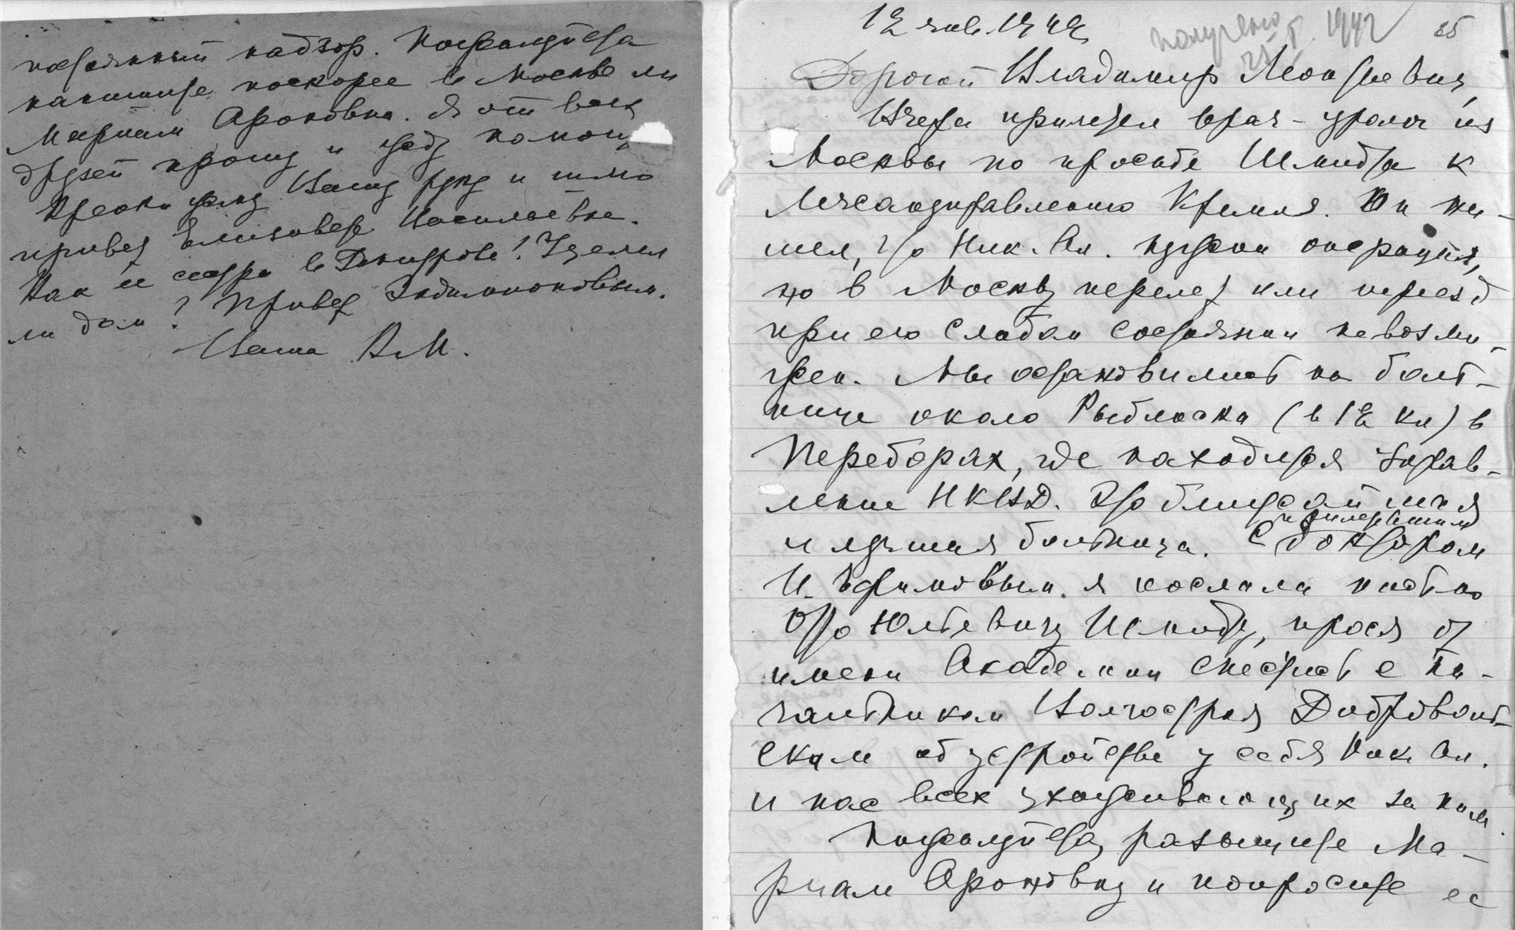 постоянный надзор. Пожалуйста
напишите поскорее в Москве ли
Мариам Ароновна. Я от всех
друзей прошу и жду помощи
Крепко жму Вашу руку и шлю
привет Елизавете Васильевне.
Как её сестра в Дмитрове! Уцелел
ли дом? Привет
Ваша А.М.
12 янв. 1942
получено 1942
Дорогой Владимир Леонтьевич,
Вчера прилетел врач-уролог из
Москвы по просьбе Шмидта к
Лечсануправлению Кремля. Он на-
шел, что Ник. Ал. нужна операция,
но в Москву перелет или переезд
при его слабом состоянии невозмо-
жен. Мы остановились на боль-
нице около Рыбинска (в 12 км) в
Переборах, где находится Управ-
ление НКВД. Это ближайшая
и лучшая больница. С прилетевшим доктором
И. Ефимовым я послала письмо
Отто Юльевичу Шмидту, прося от
имени Академии снестись с На-
чальником Волгостроя
ским об устройстве у себя Ник. Ал.
и нас всех ухаживающих за ним.
Пожалуйста, разыщите Ма-
риам Ароновну и попросите ее